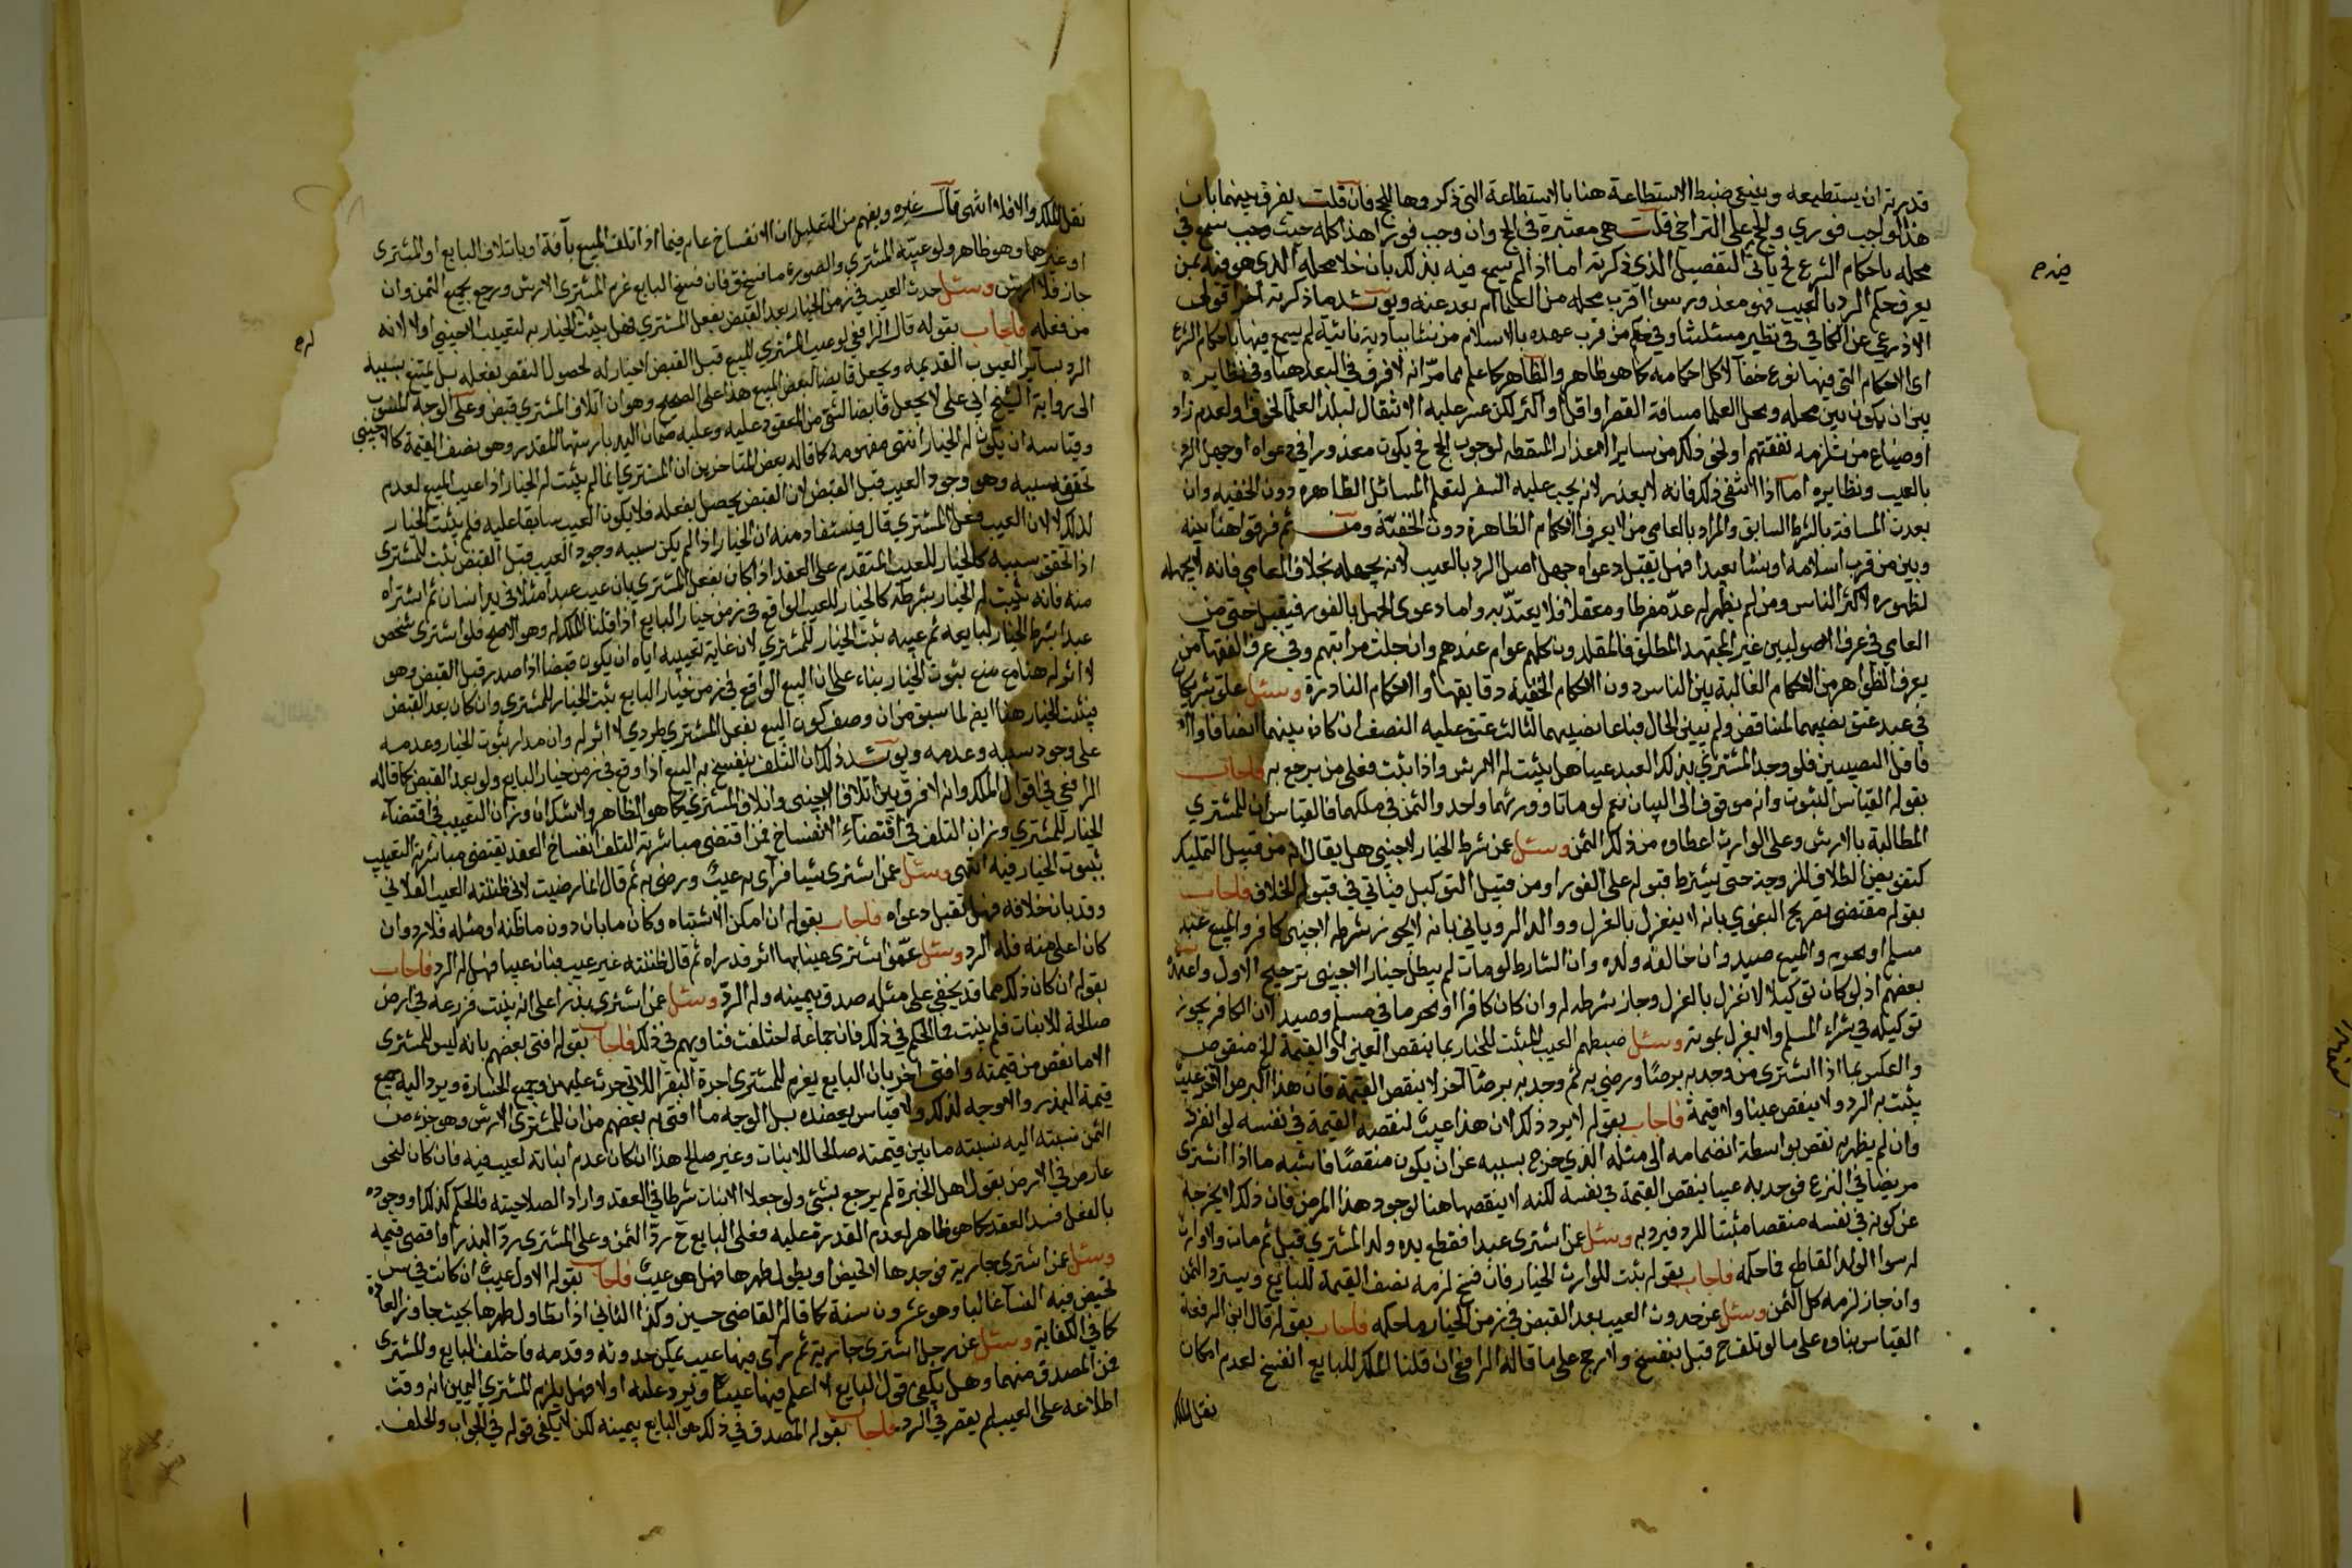 قدرته ان يستطيعه وينبغي ضبط الاستطاعة هنا بالاستطاعة التي ذكروها للحج فان قلت يفرق بينهما بان
هذا كواجب فوري والحج على التراخي قلت هي معتبرة في الحج وان وجب فورا هذا كله حيث وجب سمع في
محله باحكام الشرع ثم ياتي التفصيل الذي ذكرته اما اذا لم يسمع فيه بذلك بان خلا محله الذي هو فيه عمن
يعرف حكم الرد بالعيب فهو معذور سوا اقرب محله من العلما ام بعد عنه ويؤيد ما ذكرته اخرا قول
الاذرعي عن الكافي في نظير مسئلتنا وفي حكم من قرب عهده بالاسلام من نشا ببادية نائية لم يسمع فيها باحكام الشرع
اى الاحكام التي فيها نوع خفآ لا كل احكامه كما هو ظاهر والظاهر كما علم مما مرّ انه لا فرق في البعد هنا وفي نظايره
بين ان يكون بين محله ومحل العلما مسافة القصر او اقل او اكثر لكن عسر عليه الانتقال لبلد العلما لخوف او لعدم زاد
او ضياع من تلزمه نفقتهم او لنحو ذلك من ساير الاعذار المسقطه لوجوب الحج فح يكون معذورا في دعواه او جهل الرد
بالعيب ونظايره اما اذا انتفى ذلك فانه لا يعذر لانه يجب عليه السفر لتعلم المسائل الظاهره دون الخفيه وان
بعدت المسافة بالشرط السابق والمراد بالعامي من لا يعرف الاحكام الظاهرة دون الخفيّة ومن ثم فرقوا هنا بينه
وبين من قرب اسلامه او نشا بعيدا فهل تقبل دعواه جهل اصل الرد بالعيب لانه يجهله بخلاف العامي فانه لا يجهله
لظهوره لاكثر الناس ومن لم يظهر له عدّ مفرطا ومغفلا فلا يعتدّ به واما دعوى الجهل بالفور فيقبل حتى من
العامي في عرف الاصوليين غير المجتهد المطلق فالمقلدون كلهم عوام عندهم وان جلت مراتبهم وفي عرف الفقها من
يعرف الظواهر من الاحكام الغالبة بين الناس دون الاحكام الخفية دقايقها والاحكام النادرة وسئل علق شريكان
في عبد عتق نصيبهما لمتناقض ولم يبين الحال فباعا نصيبهما لثالث عتق عليه النصف ان كان بينهما انصافا والا
فاقل النصيبين فلو وجد المشتري بذلك العبد عيبا هل يثبت له الارش واذا ثبت فعلى من يرجع به فاجاب
بقوله القياس الثبوت وانه موقوف الى البيان نعم لو ماتا وورثهما واحد والثمن في ملكهما فالقياس ان للمشتري
المطالبة بالارش وعلى الوارث اعطاوه من ذلك الثمن وسئل عن شرط الخيار لاجنبي هل يقال انه من قبيل التمليك
كتفويض الطلاق للزوجة حتى يشترط قبوله على الفور او من قبيل التوكيل فياتي في قبوله الخلاف فاجاب
بقوله مقتضى تصريح البغوي بانه لا ينعزل بالعزل ووالد الروياني بانه لا يجوز شرطه لاجنبي كافر والمبيع عبد
مسلم او محرم والمبيع صيد وان خالفه ولده وان الشارط لو مات لم يبطل خيار الاجنبي ترجيح الاول واعتمده
بعضهم اذ لو كان توكيلا لانعزل بالعزل وجاز شرطه له وان كان كافرا او محرما في مسلم وصيد لان الكافر يجوز
توكيله في شراء المسلم ولا يعزل بموته وسئل ضبطهم العيب المثبت للخيار بما ينقص العين او القيمة الخ منقوض
والعكس بما اذا اشترى من وجد به برصا ورضي به ثم وجد به برصا آخر لا ينقص القيمة فان هذا البرص الاخر عيب
يثبت به الرد ولا ينقص عينا ولا قيمة فاجاب بقوله لا يرد ذلك لان هذا عيب لنقصه القيمة في نفسه لو انفرد
وان لم يظهر به نقص بواسطة انضمامه الى مثله الذي خرج بسببه عن ان يكون منقصا فاشبه ما اذا اشترى
مريضا في النزع فوجد به عيبا ينقص القيمة في نفسه لكنه لا ينقصها هنا لوجود هذا المرض فان ذلك لا يخرجه
عن كونه في نفسه منقصا مثبتا للرد فيرد به وسئل عن اشترى عبدا فقطع يده ولد المشتري قبل ثم مات ولا وارث
له سوا الولد القاطع فاحكمه فاجاب بقوله يثبت للوارث الخيار فان فسخ لزمه نصف القيمة للبايع ويسترد الثمن
وان جاز لزمه كل الثمن وسئل عن حدوث العيب بعد القبض في زمن الخيار ما حكمه فاجاب بقوله قال ابن الرفعة
القياس بناوه على ما لو تلف ح قبل ينفسخ والارجح على ما قاله الرافعي ان قلنا الملك للبايع انفسخ لعدم امكان
نقل الملك
نقل الملك والا فلا انتهى قال غيره ويفهم من التعليل ان الانفساخ عام فيما اذا تلف المبيع بآفة او باتلاف البايع او المشتري
او غيرهما وهو ظاهر ولو عيّبه المشتري والصورة ما سبق فان فسخ البايع غرم المشتري الارش ورجع بجميع الثمن وان
جاز فلا ارش وسئل حدث العيب في زمن الخيار بعد القبض بفعل المشتري فهل يثبت الخيار به لتعييب الاجنبي او لا لانه
من فعله فاجاب بقوله قال الرافعي لو عيب المشتري المبيع قبل القبض لا خيار له لحصول النقص بفعله بل يمتنع بسببه
الرد بساير العيوب القديمه ويجعل قابضا لبعض المبيع هذا على الصحيح وهو ان اتلاف المشتري قبض وعلى الوجه المنسوب
الى رواية الشيخ ابي على لا يجعل قابضا لشئ من المعقود عليه وعليه ضمان اليد بارشها المقدر وهو نصف القيمة كالاجنبي
وقياسه ان يكون له الخيار انتهى مفهومه كما قاله بعض المتاخرين ان المشتري انما لم يثبت له الخيار اذا عيب المبيع لعدم
تحقق سببه وهو وجود العيب قبل القبض لان القبض يحصل بفعله فلا يكون العيب سابقا عليه فلم يثبت الخيار
لذلك لا لان العيب فعل المشتري قال فيستفاد منه ان الخيار اذا لم يكن سببه وجود العيب قبل القبض يثبت للمشتري
اذا تحقق سببه كالخيار للعيب المتقدم على العقد اذا كان بفعل المشتري بان عيب عبدا مثلا في يد انسان ثم اشتراه
منه فانه يثبت له الخيار بشرطه كالخيار للعيب الواقع في زمن خيار البايع اذا قلنا الملك له وهو الاصح فلو اشترى شخص
عبدا بشرط الخيار لبايعه ثم عيبه يثبت الخيار للمشتري لان غاية تعييبه اياه ان يكون قبضا اذا صدر قبل القبض وهو
لا اثر له هنا مع منع ثبوت الخيار بناء على ان البيع الواقع في زمن خيار البايع يثبت الخيار للمشتري وان كان بعد القبض
فيثبت الخيار هنا ايض لما سبق من ان وصف كون البيع بفعل المشتري طردي لا اثر له وان مدار ثبوت الخيار وعدمه
على وجود سببه وعدمه ويؤيد ذلك ان التلف ينفسخ به البيع اذا وقع في زمن خيار البايع ولو بعد القبض كما قاله
الرافعي في اقوال الملك وانه لا فرق بين اتلاف الاجنبي واتلاف المشتري كما هو الظاهر ولا شك ان وزان التعييب في اقتضآء
الخيار للمشتري وزان التلف في اقتضآء الانفساخ فمن اقتضى مباشرته التلف انفساخ العقد يقتضى مباشرته التعييب
ثبوت الخيار فيه انتهى وسئل عن اشترى شيئا فرآى به عيبا ورضي به ثم قال انما رضيت لاني ظننته العيب الفلاني
وقد بان خلافه فهل تقبل دعواه فاجاب بقوله ان امكن الاشتباه وكان ما بان دون ما ظنه او مثله فلا رد وان
كان اعلى منه فله الرد وسئل عمّن اشترى عينا بها اثر قد راه ثم قال ظننته غير عيب فبان عيبا فهل له الرد فاجاب
بقوله ان كان ذلك مما قد يخفى على مثله صدق بيمينه وله الردّ وسئل عن اشترى بذرا على انه ينبت فزرعه في ارض
صالحة للانبات فلم ينبت فما الحكم في ذلك فان جماعة اختلفت فتاويهم في ذلك فاجاب بقوله افتى بعضهم بانه ليس للمشترى
الا ما نقص من قيمته وافتى اخر بان البايع يغرم للمشترى اجرة البقر اللاتي حرث عليهن وجميع الخسارة ويرد اليه جميع
قيمة البذر والاوجه لذلك ولا قياس يعضده بل الوجه ما افتى به بعضهم من ان للمشترى الارش وهو جزء من
الثمن نسبته اليه نسبته ما بين قيمته صالحا للانبات وغير صالح هذا ان كان عدم انباته لعيب فيه فان كان لنحو
عارض في الارض بقول اهل الخبرة لم يرجع بشئ ولو جعلا الانبات شرطا في العقد واراد الصلاحيته فالحكم كذلك او وجوده
بالفعل فسد العقد كما هو ظاهر لعدم القدرة عليه فعلى البايع ح ردّ الثمن وعلى المشترى ردّ البذر او اقصى قيمه
وسئل عن اشترى جارية فوجدها لا تحيض او يطول طهرها فهل هو عيب فاجاب بقوله الاول عيب ان كانت في سن
تحيض فيه النسآ غالبا وهو عشرون سنة كما قاله القاضي حسين وكذا الثاني اذا تطاول طهرها بحيث جاوز العادة
كما في الكفاية وسئل عن رجل اشترى جارية ثم رآى فيها عيب يمكن حدوثه وقدمه فاختلف البايع والمشترى
فمن المصدق منهما وهل يكفي قول البايع لا اعلم فيها عيبا ويرد عليه او لا فهل يلزم المشتري اليمين انه وقت
اطلاعه على العيب لم يقصر في الرد فاجاب بقوله المصدق في ذلك هو البايع بيمينه لكن لا يكفى قوله في الجواب والحلف